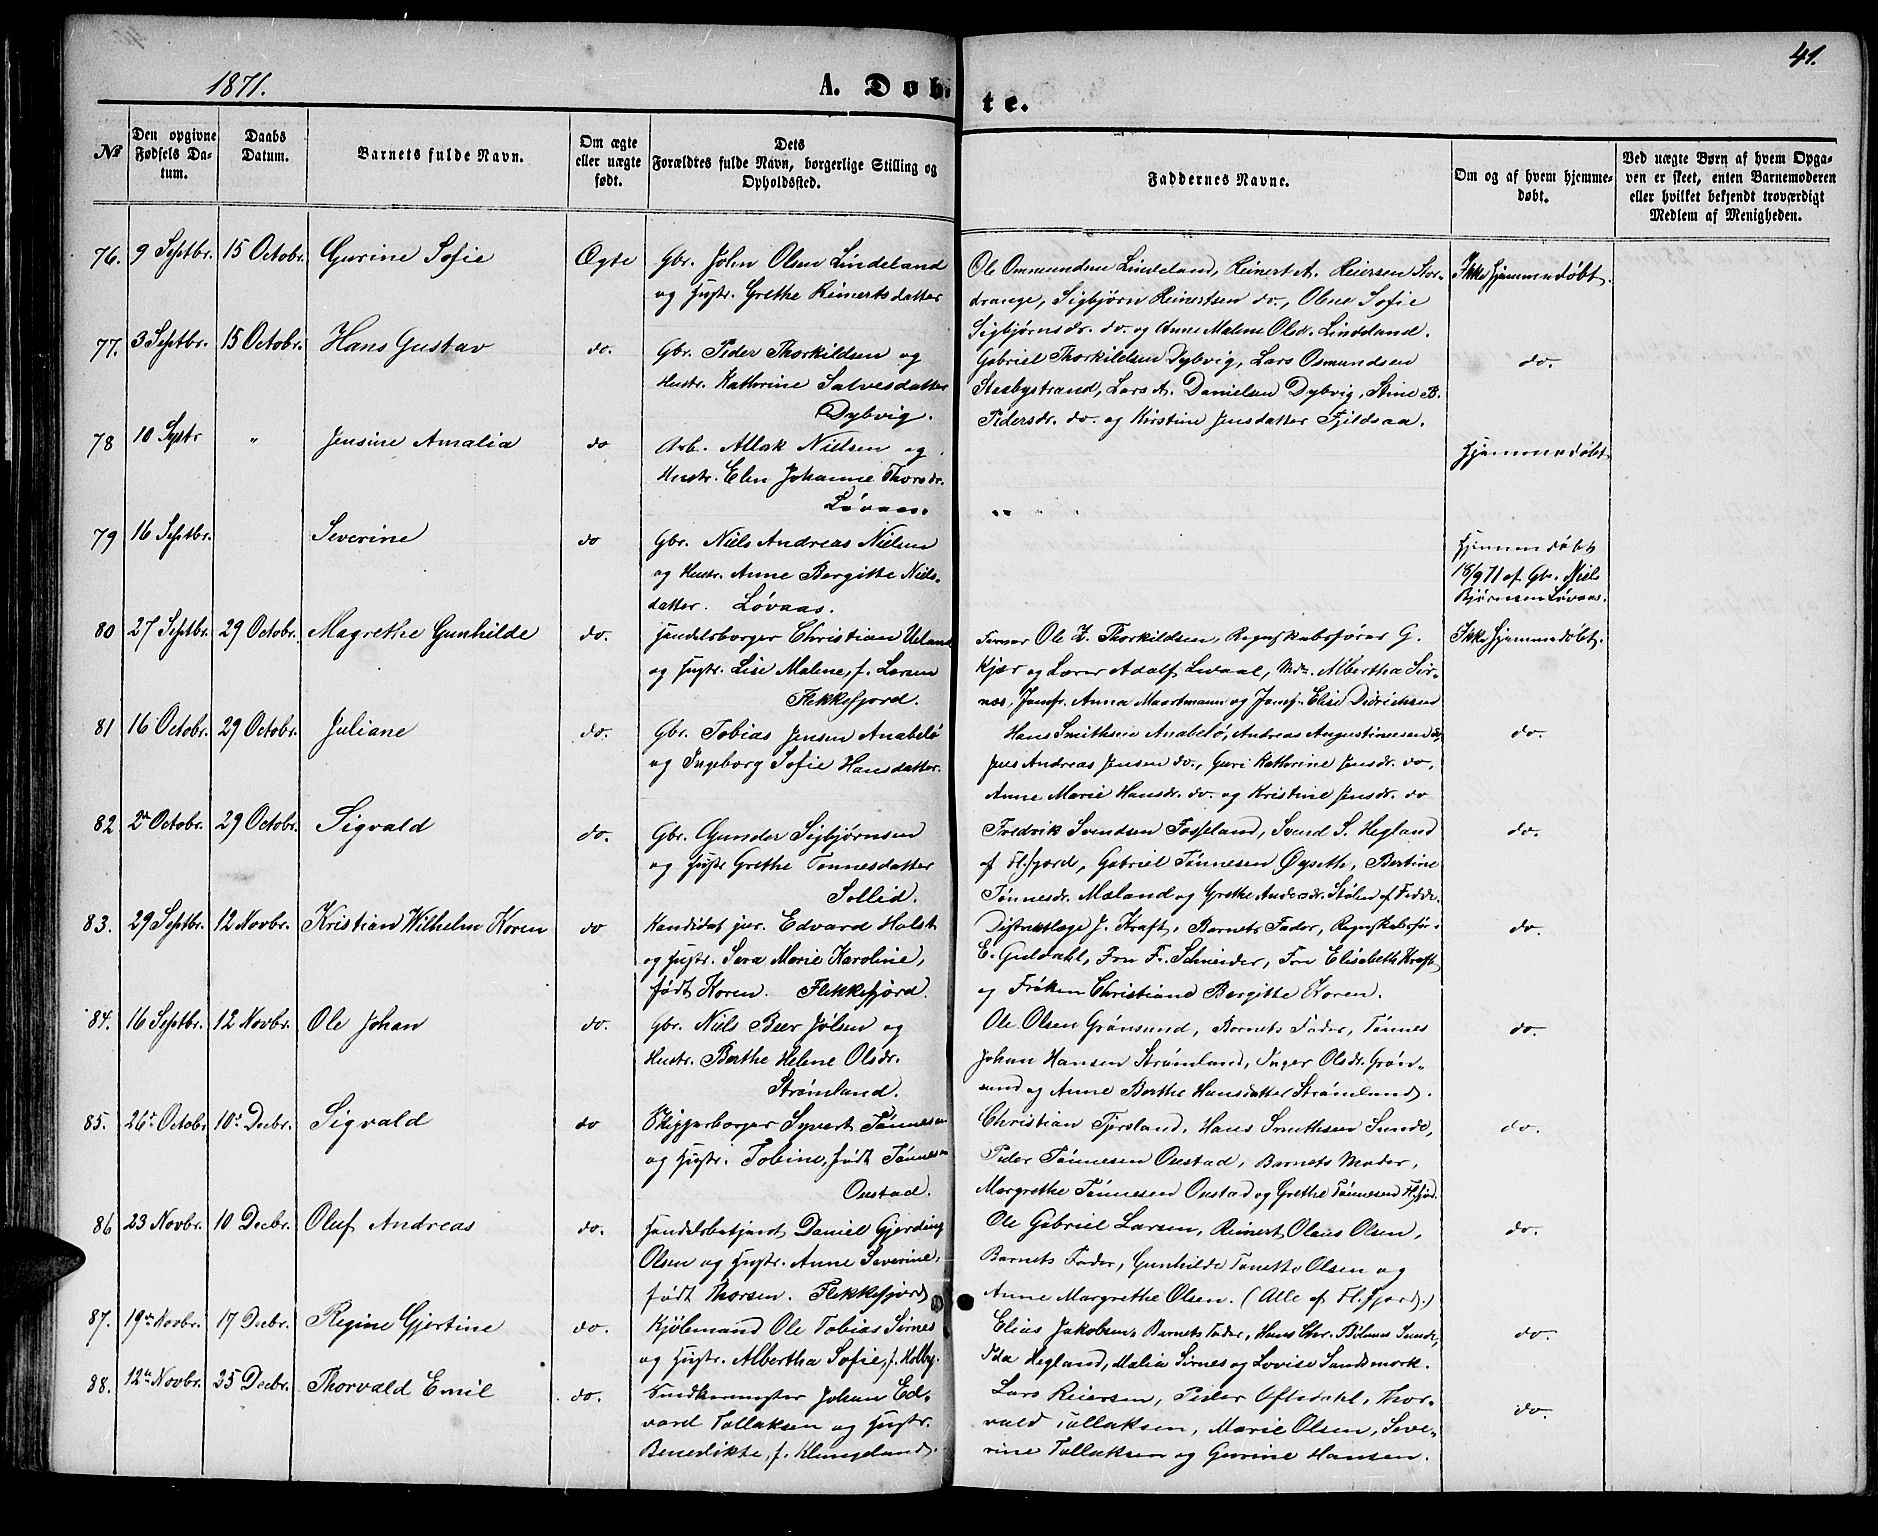 41.
1871.
A. Døbte.
No
Den opgivne Fødsels Datum.
Daabs Datum.
Barnets fulde Navn.
Om ægte eller uægte født.
Dets Forældres fulde Navn, borgerlige Stilling og Opholdssted.
Faddernes Navne.
Om og af hvem hjemmedøbt.
Ved uægte Børn af hvem Opgaven er skeet, enten Barnemoderen eller hvilket bekjendt troværdigt Medlem af Menigheden.
76. 9 Septbr. 15 Octobr. Gurine Sofie Ægte Gbr. John Olsen Lindeland
og Hustr. Grethe Reinertsdatter
Ole Ommundsen Lindeland, Reinert A. Reiersen Stor-
drange, Sigbjørn Reinertsen do., Olene Sofie
Sigbjørnsdr. do. og Anne Malene Olsdr. Lindeland.
Ikke hjemmedøbt.
77. 3 Septbr. 15 Octobr. Hans Gustav do. Gbr. Peder Thorkildsen og
Hustr. Kathrine Salvesdatter
Dybvig.
Gabriel Thorkildsen Dybvig, Lars Osmundsen
Stesbystrand, Lars A. Danielsen Dybvig, Stine B.
Pedersdr. do. og Kirstine Jensdatter Fjeldsaa.
do.
78 10 Septr " Jensine Amalia do Arb. Atlak Nielsen og
Hustr. Elen Johanne Thorsdr.
Løvaas.
" "
Hjemmedøbt
79 16 Septbr. Severine do Gbr. Niels Andreas Nielsen
og Hustr. Anne Bergitte Niels-
datter. Løvaas.
Hjemmedøbt
18/9 71 af Gbr. Niels
Bjørnsen Løvaas.
80 27 Septbr. 29 Octobr. Magrethe Gunhilde do. Handelsborger Christian Ueland
og Hustr. Lise Malene, f. Larsen
Flekkefjord.
Farver Ole Z. Thorkildsen, Regnskabsfører G.
Kjær og Lærer Adolf Lwaal, Md. Albertha Sir-
nes, Jomfr. Anna Maartmann og Jomf. Elise Didrichsen
Ikke hjemmedøbt.
81 16 Octobr. 29 Octobr. Juliane do. Gbr. Tobias Jensen Anabelø
og Ingeborg Sofie Hansdatter.
Hans Smithsen Anabelø, Andreas Augustinusen do,
Jens Andreas Jensen do., Guri Kathrine Jensdr. do,
Anne Marie Hansdr. do. og Kristine Jensdr. do
do.
82 2den Octobr. 29 Octobr. Sigvald do. Gbr. Gunder Sigbjørnsen
og Hustr Grethe Tønnesdatter
Sollid.
Fredrik Svendsen Fosseland, Svend S. Hegland
af Fl.fjord, Gabriel Tønnesen Øyseth, Bertine
Tønnesdr. Mæland og Grethe Andersdr. Stølen af Fedde.
do.
83. 29 Septbr. 12 Novbr. Kristian Wilhelm Koren do Kandidat jur. Edvard Holst
og Hustr. Sara Marie Karoline,
født Koren. Flekkefjord.
Distriktslæge J. Kraft, Barnets Fader, Regnskabsfør.
E. Guldahl, Fru F. Schneider, Fru Elisabeth Kraft
og Frøken Christiane Bergitte Koren.
do.
84. 16 Septbr. 12 Novbr. Ole Johan do. Gbr. Niels Beer Jølsen og
Hustr. Berthe Helene Olsdr.
Strømland.
Ole Olsen Grønsund, Barnets Fader, Tønnes
Johan Hansen Strømland, Inger Olsdr. Grøn-
sund og Anne Berthe Hansdatter Strømland.
do.
85. 26de Octobr 10de Decbr. Sigvald do Skipperborger Syvert Tønnesen
og Hustr. Tobine, født Tønnesen
Oustad.
Christian Fjørsland, Hans Smithsen Sunde,
Peder Tønnesen Oustad, Barnets Moder,
Margrethe Tønnesen Oustad og Grethe Tønnesen Fl.fjord.
do.
86 23 Novbr. 10 Decbr. Oluf Andreas do. Handelsbetjent Daniel Gjerding
Olsen og Hustr. Anne Severine,
født Thorsen. Flekkefjord
Ole Gabriel Larsen, Reinert Olaus Olsen,
Barnets Fader, Gunhilde Tonette Olsen og
Anne Margrethe Olsen. (Alle af Fl.fjord.)
do.
87. 19de Novbr. 17 Decbr. Regine Gjertine do. Kjøbmand Ole Tobias Sirnes
og Hustr. Albertha Sofie, f. Holby.
Elias Jakobsen, Barnets Fader, Hans Chr. Beer Sunde,
Ida Hegland, Malia Sirnes og Lovise Sandsmark.
do.
88. 12te Novbr. 25 Decbr. Thorvald Emil do. Snedkermester Johan Ed-
vard Tallaksen og Hustr.
Benedikte, f. Klungeland.
Lars Reiersen, Peder Oftedahl, Thor-
vald Tallaksen, Marie Olsen, Seve-
rine Tallaksen og Gurine Hansen.
do.